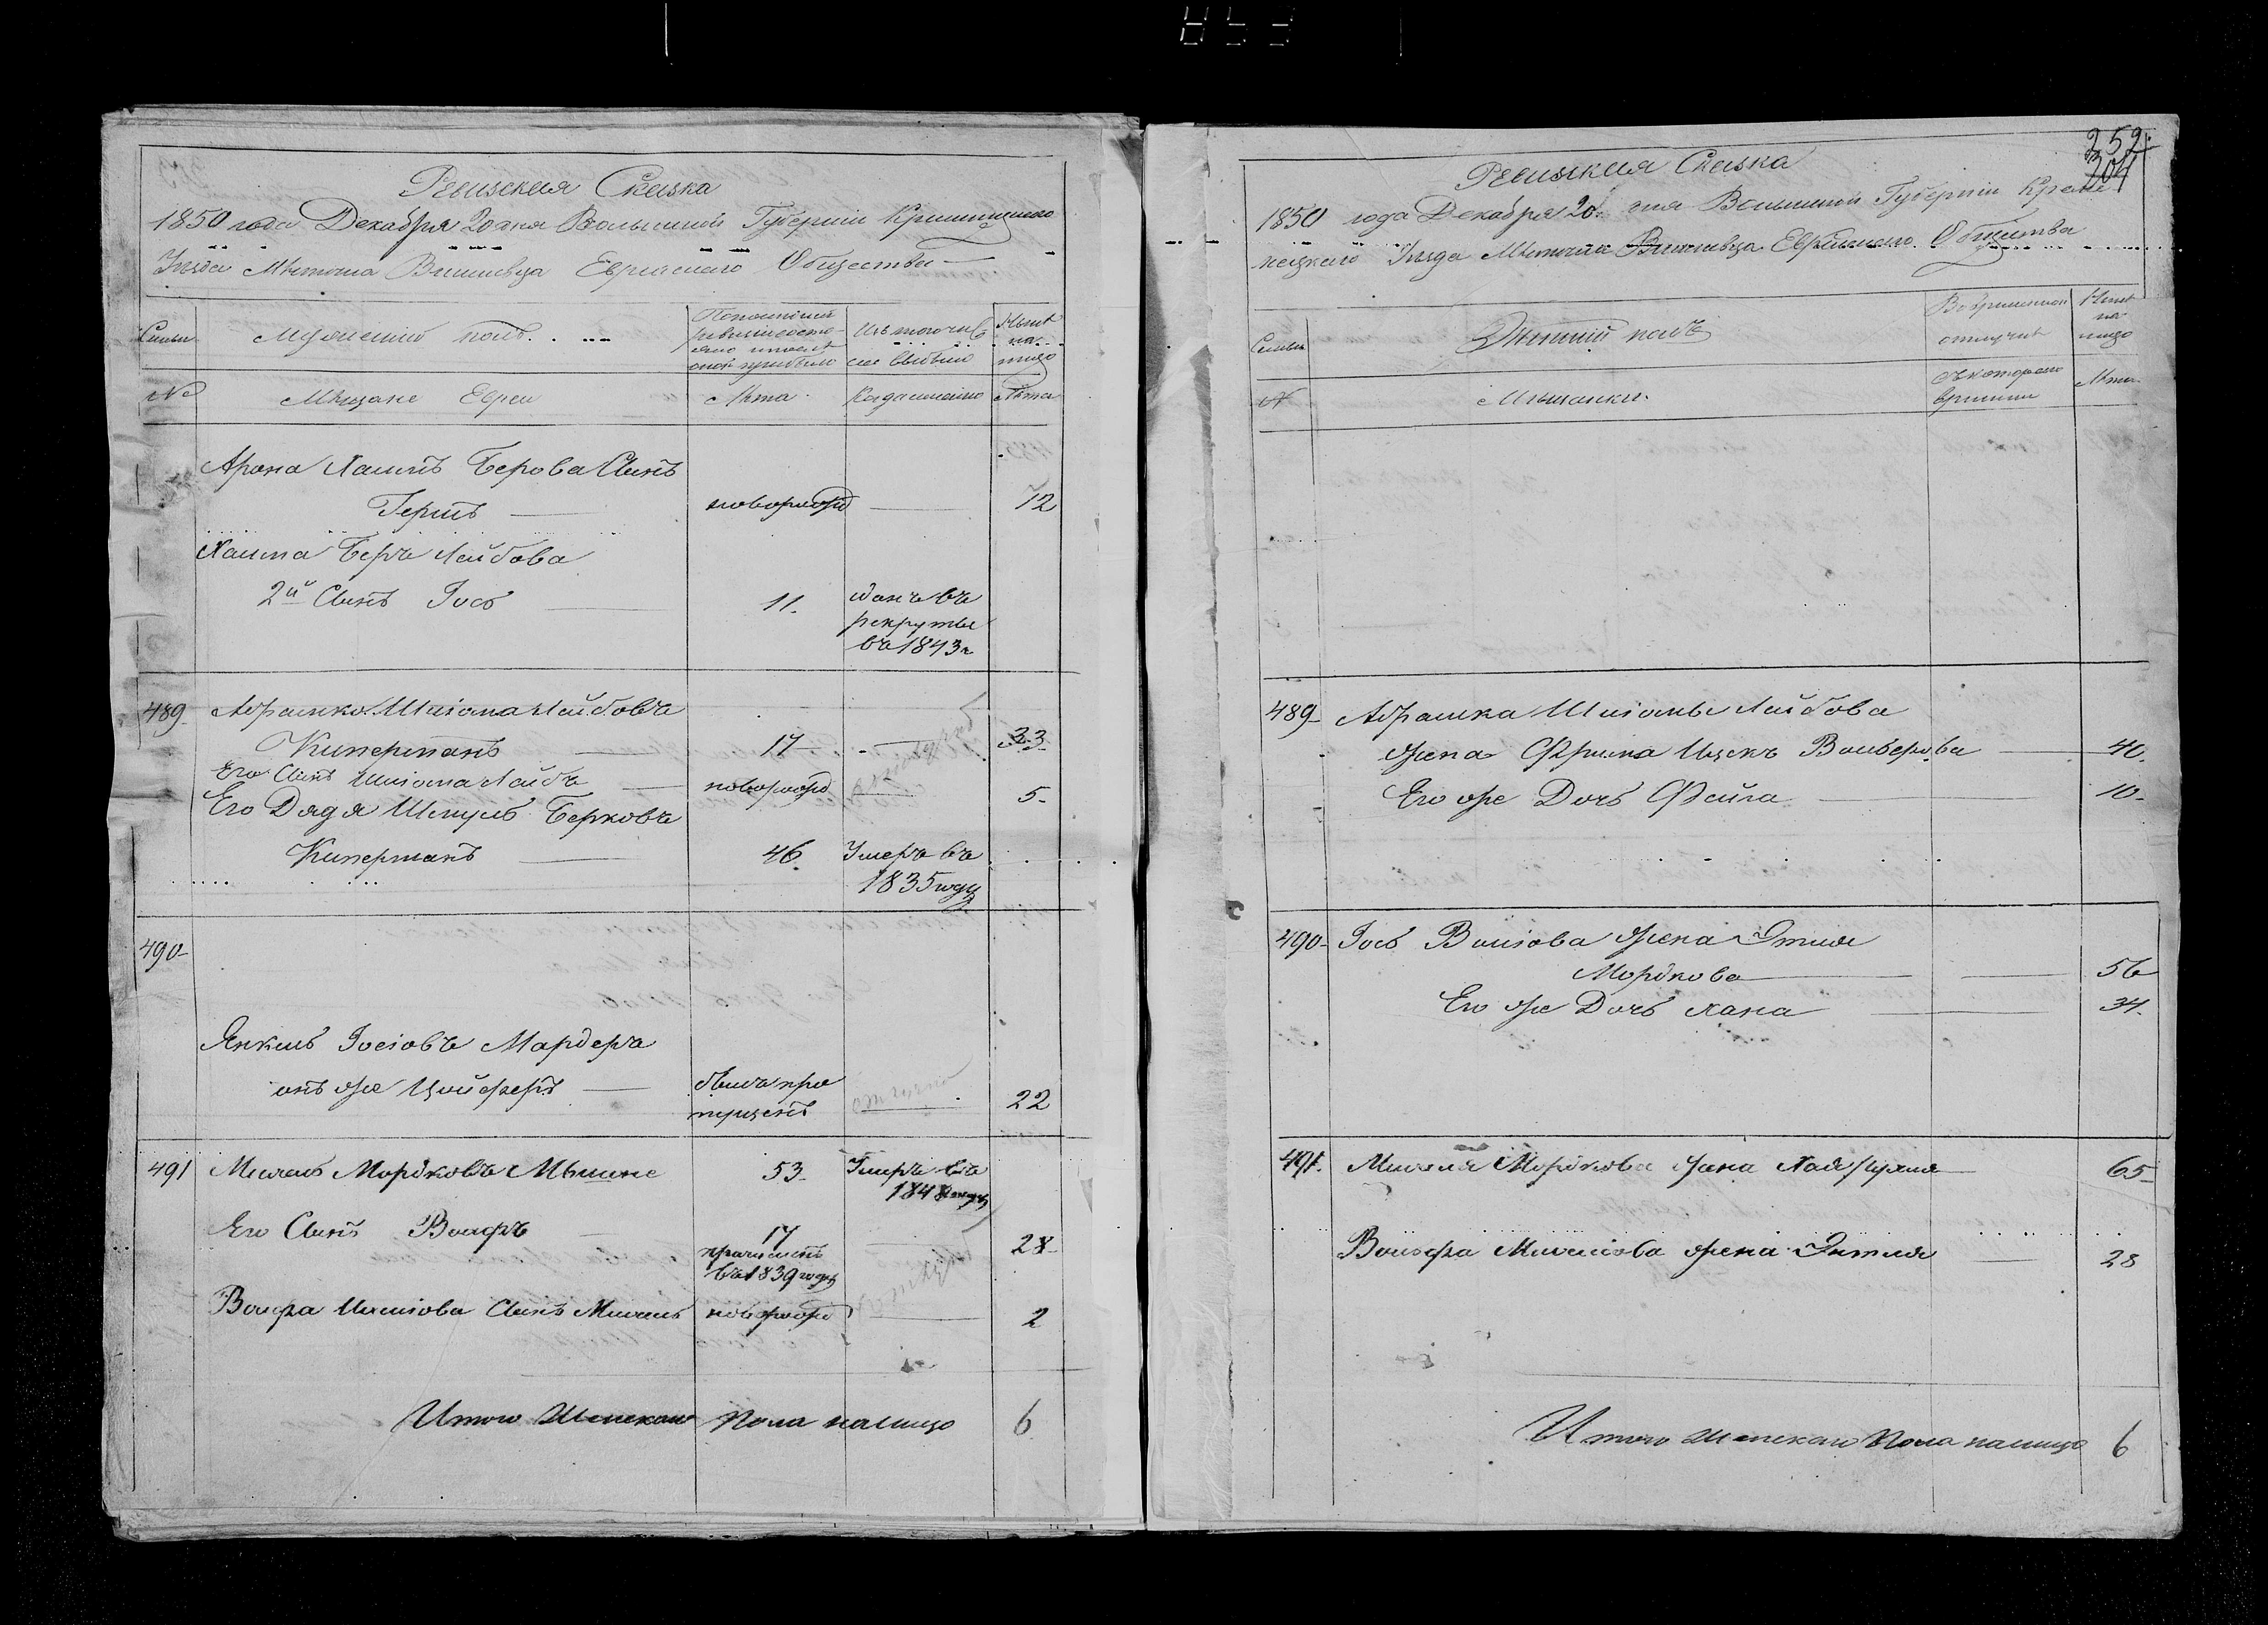 Ревизская Сказка
1850 года Декабря 20 дня Волынской Губернии Кременецкаго
Уезда Местечка Вишневца Еврейскаго Общества
Семьи
Мужеский полъ.
По последней
ревизии состояло и после
оной прибыло
Изъ того числа выбыло
Ныне на лицо
№
Мещане Евреи
Лета
Когда именно
Лета
Арона Хаимъ Берова Сынъ
Гершъ новорожд 12
Хаима Беръ Лейбова
2й Сынъ Іось 11. зданъ въ
рекруты
въ 1843 г
489 Абрамко Шліома Лейбовъ
Киперманъ 17 33
Его Сынъ Шліома Лейбъ новорожд 5
Его Дядя Шмуль Берковъ
Киперманъ 46. Умеръ въ
1835 году
490
Янкель Іосіовъ Мардеръ
онъ же Цойферъ былъ про
пущенъ 22
491 Михель Мордковъ 53 Умеръ въ
1848 году
Его Сынъ Вольфъ 17 28
въ 1839 году
Вольфа Сынъ Михель новорожд 2
Итого Пола налицо 6
252
204
Ревизская Сказка
1850 года Декабря 20 дня Волынской Губернии Креме
нецкаго Уезда Местечка Вишневца Еврейскаго Общества
Семьи
Женский полъ
Во временной
отлучке
Ныне
на
лицо
№
Мещанки.
Съ котораго
времени
Лета
489 Абрамка Шліомы Лейбова
жена Фрима Ицекъ Вольфова 40.
Его же Дочь Фейга 10
490 Іось жена Этля
Мордкова 56
Его же Дочь Хана 34.
491. Михеля Мордкова жена 65
Вольфа Михелова жена Этля 28
Итого Женскаго Пола налицо 6